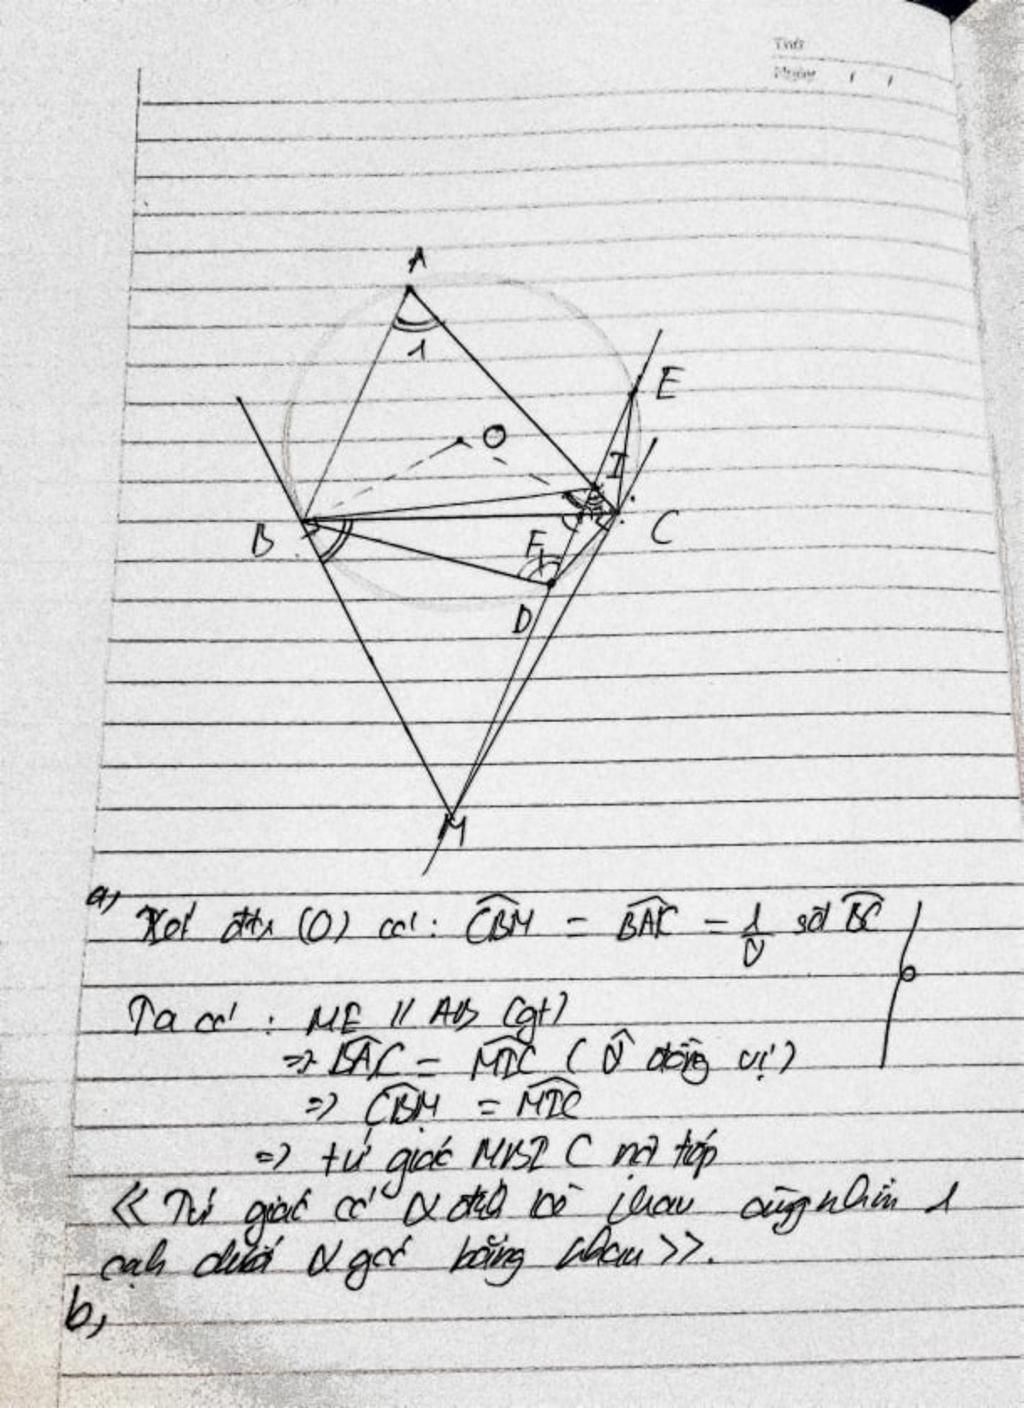 Thứ
Ngày / /
A
1
E
O
I
B
C
F
D
M
a) Xét đtr (O) có: CBM = BAC = 1/2 sđ BC
Ta có: ME // AB (gt)
=> BAC = MIC (2 đồng vị)
=> CBM = MIC
=> tứ giác MBIC nội tiếp
<< Tứ giác có 2 đỉnh kề nhau cùng nhìn 1
cạnh dưới 2 góc bằng nhau >>.
b,